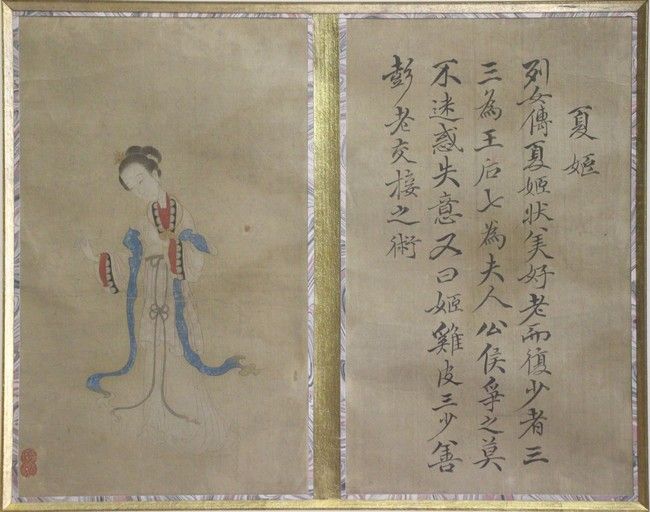 夏姬
列女傳夏姬狀美好老而復少者三
三為王后七為夫人公侯爭之莫
不迷惑失意又曰姬雞皮三少善
彭老交接之術